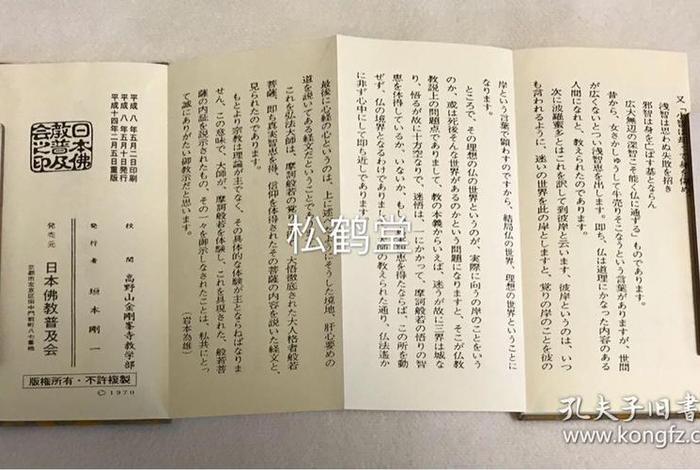 浅智は思わぬ失敗を招き
邪智は身を亡ぼす基とならん
広大無辺の深智こそ能く仏に通ずる」ものであります。
昔から、女さかしゅうして牛売りそこなうという言葉がありますが、世間
が広くないとつい浅智恵を出します。即ち、仏は道理にかなった内容のある
人間になれと、教えられたのであります。
次に波羅蜜多とはこれを訳して到彼岸と云います、彼岸というのは、いつ
も言われるように、迷いの世界を此の岸としますと、覚りの岸のことを彼の
岸という言葉で顕わすのですから、結局仏の世界、理想の世界ということに
なります。
ところで、その理想の仏の世界というのが、実際に向うの岸のことをいう
のか、或は死後そんな世界があるのかという問題になりますと、そこが仏教
教説上の問題点でありまして、教の本義からいえば、迷うが故に三界は城な
り、悟るが故に十方空なりで、迷悟は、一にかかって、摩訶般若の悟りの智
恵を体得しているか、いないか、も
恵を得たならば、この所を動
ぜず、仏の境界となるわけであります
の教えられた通り、仏法遙か
に非ず心中にして即ち近しであります。
最後に心経の心というのは、上に述
ようにそうした境地、肝心要めの
道を説いてある経文だということで
これを弘法大師は、摩訶般若の覚り
大悟徹底された大人格者般若
菩薩、即ち真実智恵を得、信仰を体得されたその菩薩の内容を説いた経文と、
見られたのであります。
もとより宗教は理論が主でなく、その具体的な体験が主とならねばなりま
せん、この意味で、大師が、摩訶般若を体験し、これを具現された、般若菩
薩の内証を説示されたもの、その一々を御示しなされたことは、私共にとっ
て誠にありがたい御教示だと思います。
（岩本為雄）
平成八年五月二日印刷
平成八年五月十日発行
平成十四年二月五日重版
日本佛
教普及
会之印
校閲 高野山金剛峯寺教学部
発行者 垣本剛一
発売元 日本佛教普及会
京都市左京区田中門前町八番地
版権所有・不許複製
©1970
松鹤堂
孔夫子旧书网
www.kongfz.com